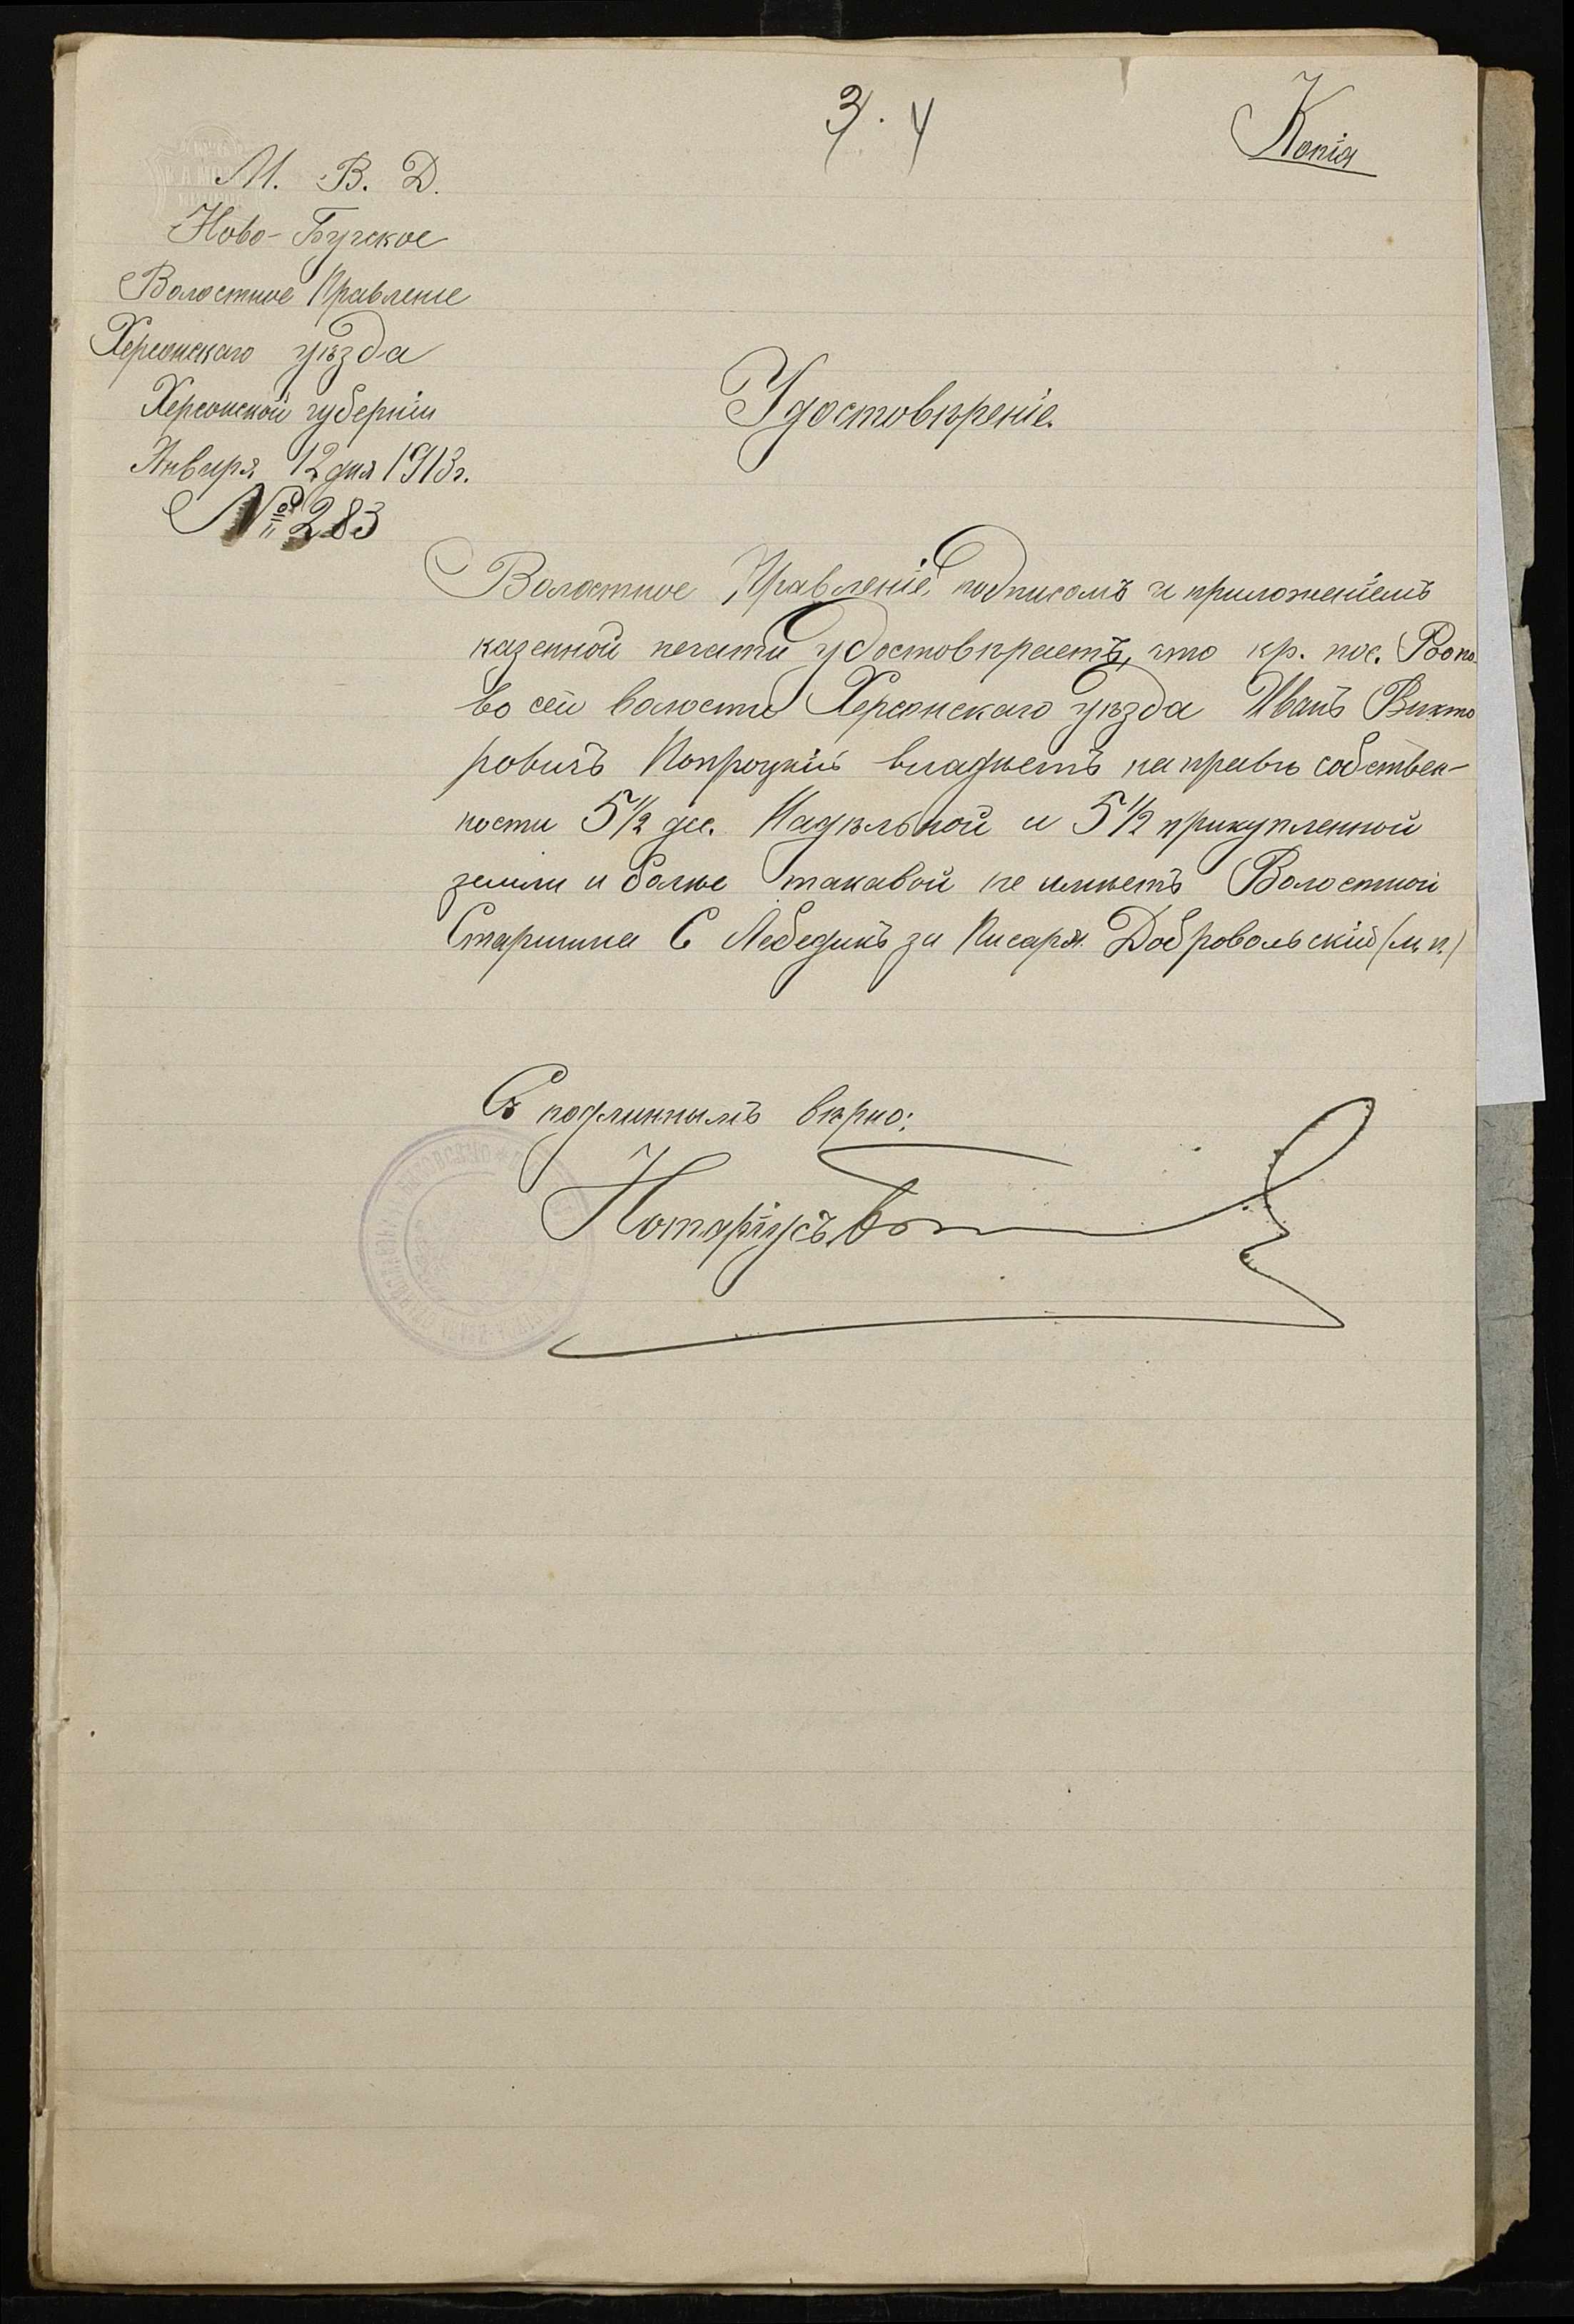 3. 4
Копія
М. В. Д.
Ново-Бугское
Волостное Правленіе
Херсонскаго уѣзда
Херсонской губерніи
Января 12 дня 1913 г.
№ 283
Удостовѣреніе.
Волостное Правленіе, подписомъ и приложеніемъ
казенной печати удостовѣряетъ, что кр. пос.
во сей волости Херсонскаго уѣзда Иванъ Викто
ровичъ Попроцкій владѣетъ на правѣ собствен-
ности 5 1/2 дес. Надѣльной и 5 1/2 прикупленной
земли и болѣе такавой не имѣетъ Волостной
Старшина С Лебединъ за Писаря Добровольскій (м. п.)
Съ подлиннымъ вѣрно:
Нотаріусъ